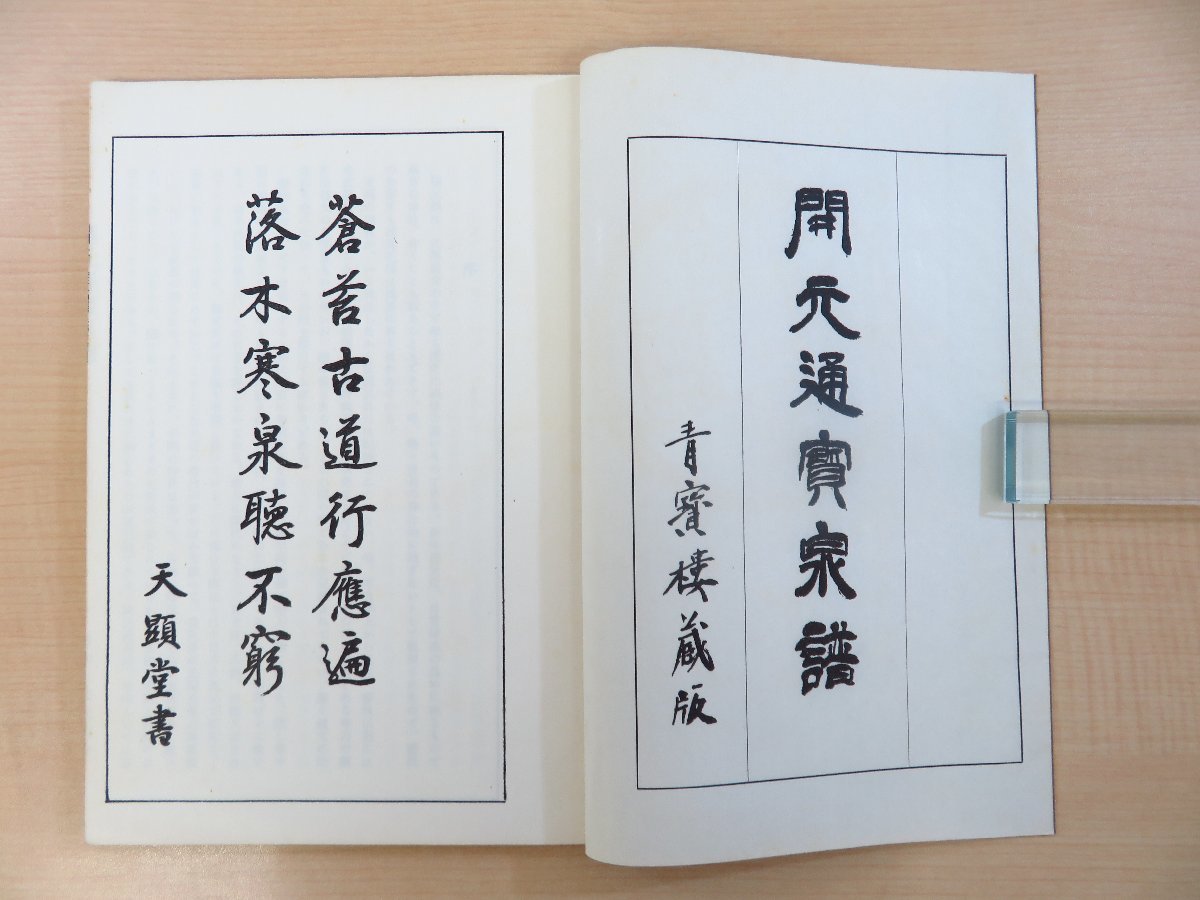 開元通寳泉譜
青寳樓藏版
蒼苔古道行應遍
落木寒泉聴不窮
天顕堂書